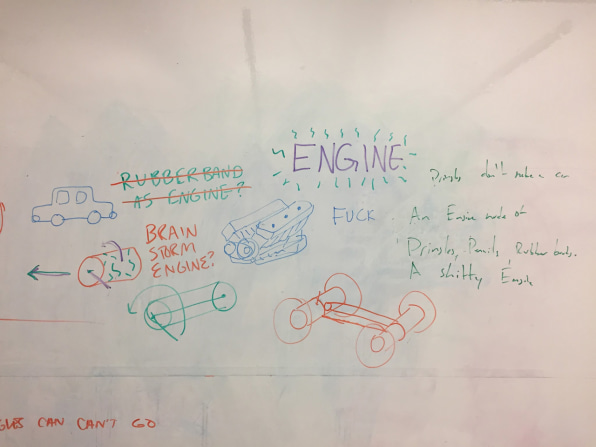 RUBBERBAND
AS ENGINE?
ENGINE
BRAIN
STORM
ENGINE?
FUCK
don't make a car
An Engine made of
Pringles, Pencils, Rubber bands.
A shitty Engine
CAN CAN'T GO